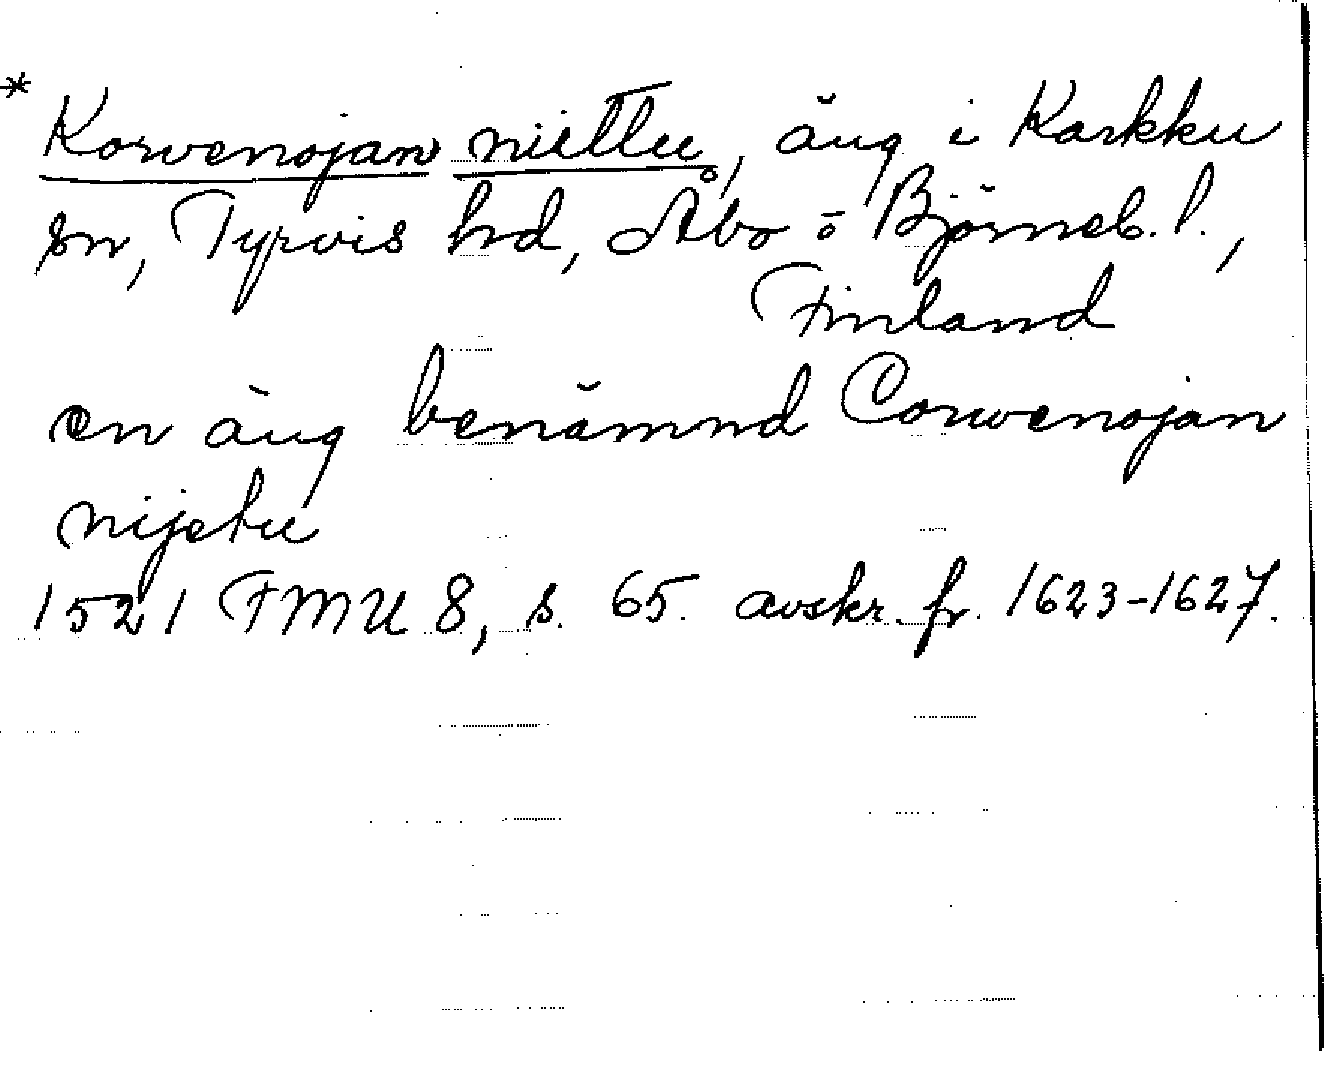 * Korvenojan niittu, äng i Karkku
sn, Tyrvis hd, Åbo ō Björneb. l.,
Finland
en äng benämnd Corwenojan
nijetu
1521 FMU 8, s. 65. avskr. fr. 1623-1627.